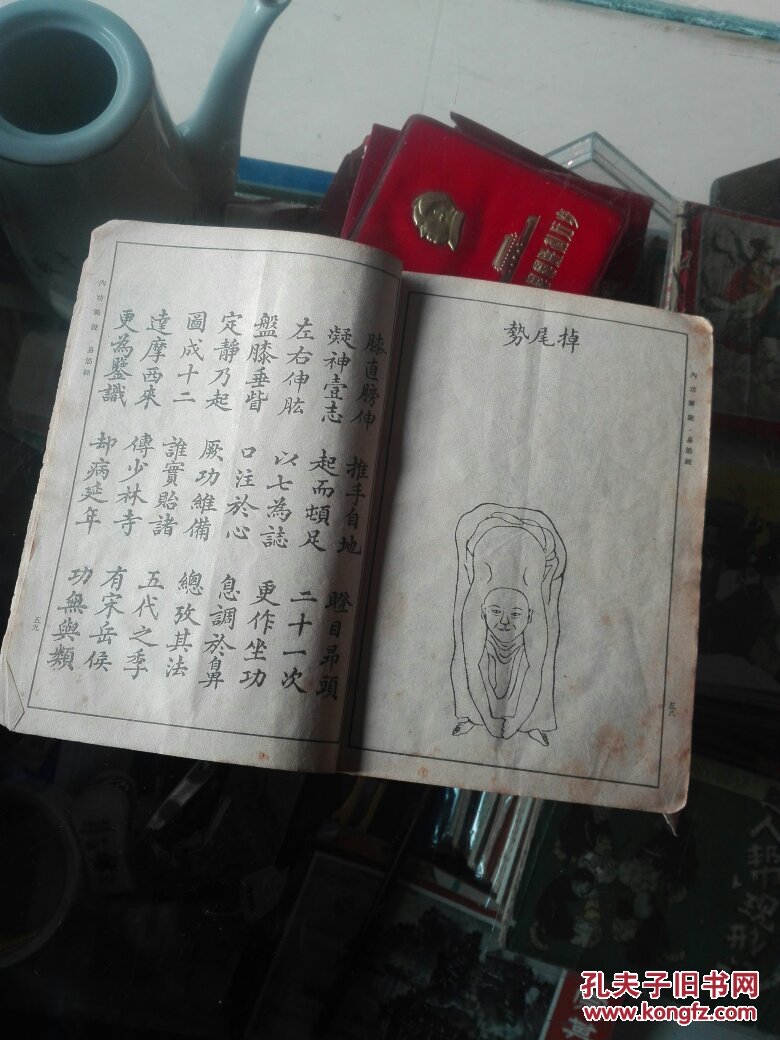 掉尾勢
內功圖說·易筋經
五八
膝直膀伸　推手自地　瞪目昂頭
凝神壹志　起而頓足　二十一次
左右伸肱　以七為誌　更作坐功
盤膝垂眥　口注於心　息調於鼻
定靜乃起　厥功維備　總攷其法
圖成十二　誰實貽諸　五代之季
達摩西來　傳少林寺　有宋岳侯
更為鑒識　却病延年　功無與類
內功圖說　易筋經
五九
孔夫子旧书网
www.kongfz.com